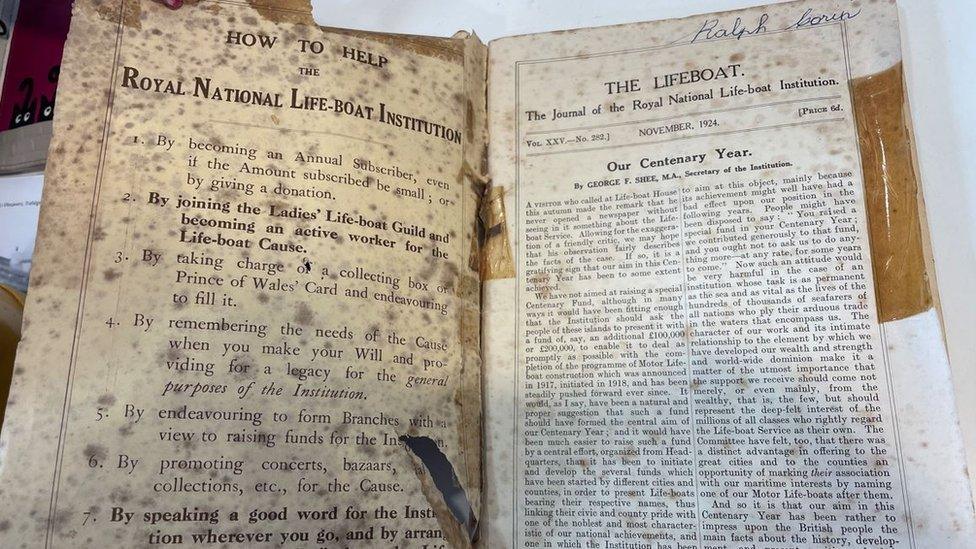 HOW TO HELP
THE
ROYAL NATIONAL LIFE-BOAT INSTITUTION
1. By becoming an Annual Subscriber, even
if the Amount subscribed be small; or
by giving a donation.
2. By joining the Ladies' Life-boat Guild and
becoming an active worker for the
Life-boat Cause.
3. By taking charge of a collecting box or
Prince of Wales' Card and endeavouring
to fill it.
4. By remembering the needs of the Cause
when you make your Will and pro-
viding for a legacy for the general
purposes of the Institution.
5. By endeavouring to form Branches with a
view to raising funds for the
6. By promoting concerts, bazaars,
collections, etc., for the Cause.
7. By speaking a good word for the
tion wherever you go, and by
Ralph Corin
THE LIFEBOAT.
The Journal of the Royal National Life-boat Institution.
VOL. XXV.—No. 282.]
NOVEMBER, 1924.
[PRICE 6d.
Our Centenary Year.
By GEORGE F. SHEE, M.A., Secretary of the Institution.
A VISITOR who called at Life-boat House
this autumn made the remark that he
never opened a newspaper without
seeing in it something about the Life-
boat Service. Allowing for the exaggera-
tion of a friendly critic, we may hope
that his observation fairly describes
the facts of the case. If so, it is a
gratifying sign that our aim in this Cen-
tenary Year has been to some extent
achieved.
We have not aimed at raising a special
Centenary Fund, although in many
ways it would have been fitting enough
that the Institution should ask the
people of these islands to present it with
a fund of, say, an additional £100,000
or £200,000, to enable it to deal as
promptly as possible with the com-
pletion of the programme of Motor Life-
boat construction which was announced
in 1917, initiated in 1918, and has been
steadily pushed forward ever since. It
would, as I say, have been a natural and
proper suggestion that such a fund
should have formed the central aim of
our Centenary Year; and it would have
been much easier to raise such a fund
by a central effort, organized from Head-
quarters, than it has been to initiate
and develop the several funds which
have been started by different cities and
counties, in order to present Life-boats
bearing their respective names, thus
linking their civic and county pride with
one of the noblest and most character-
istic of our national achievements, and
one in which the Institution has been
to aim at this object, mainly because
its achievement might well have had a
bad effect upon our position in the
following years. People might have
been disposed to say: "You raised a
special fund in your Centenary Year;
we contributed generously to that fund,
and you ought not to ask us to do any-
thing more—at any rate, for some years
to come." Now such an attitude would
be very harmful in the case of an
institution whose task is as permanent
as the sea and as vital as the lives of the
hundreds of thousands of seafarers of
all nations who ply their arduous trade
in the waters that encompass us. The
character of our work and its intimate
relationship to the element by which we
have developed our wealth and strength
and world-wide dominion make it a
matter of the utmost importance that
the support we receive should come not
merely, or even mainly, from the
wealthy, that is, the few, but should
represent the deep-felt interest of the
millions of all classes who rightly regard
the Life-boat Service as their own. The
Committee have felt, too, that there was
a distinct advantage in offering to the
great cities and to the counties an
opportunity of marking their association
with our maritime interests by naming
one of our Motor Life-boats after them.
And so it is that our aim in this
Centenary Year has been rather to
impress upon the British people the
main facts about the history, develop-